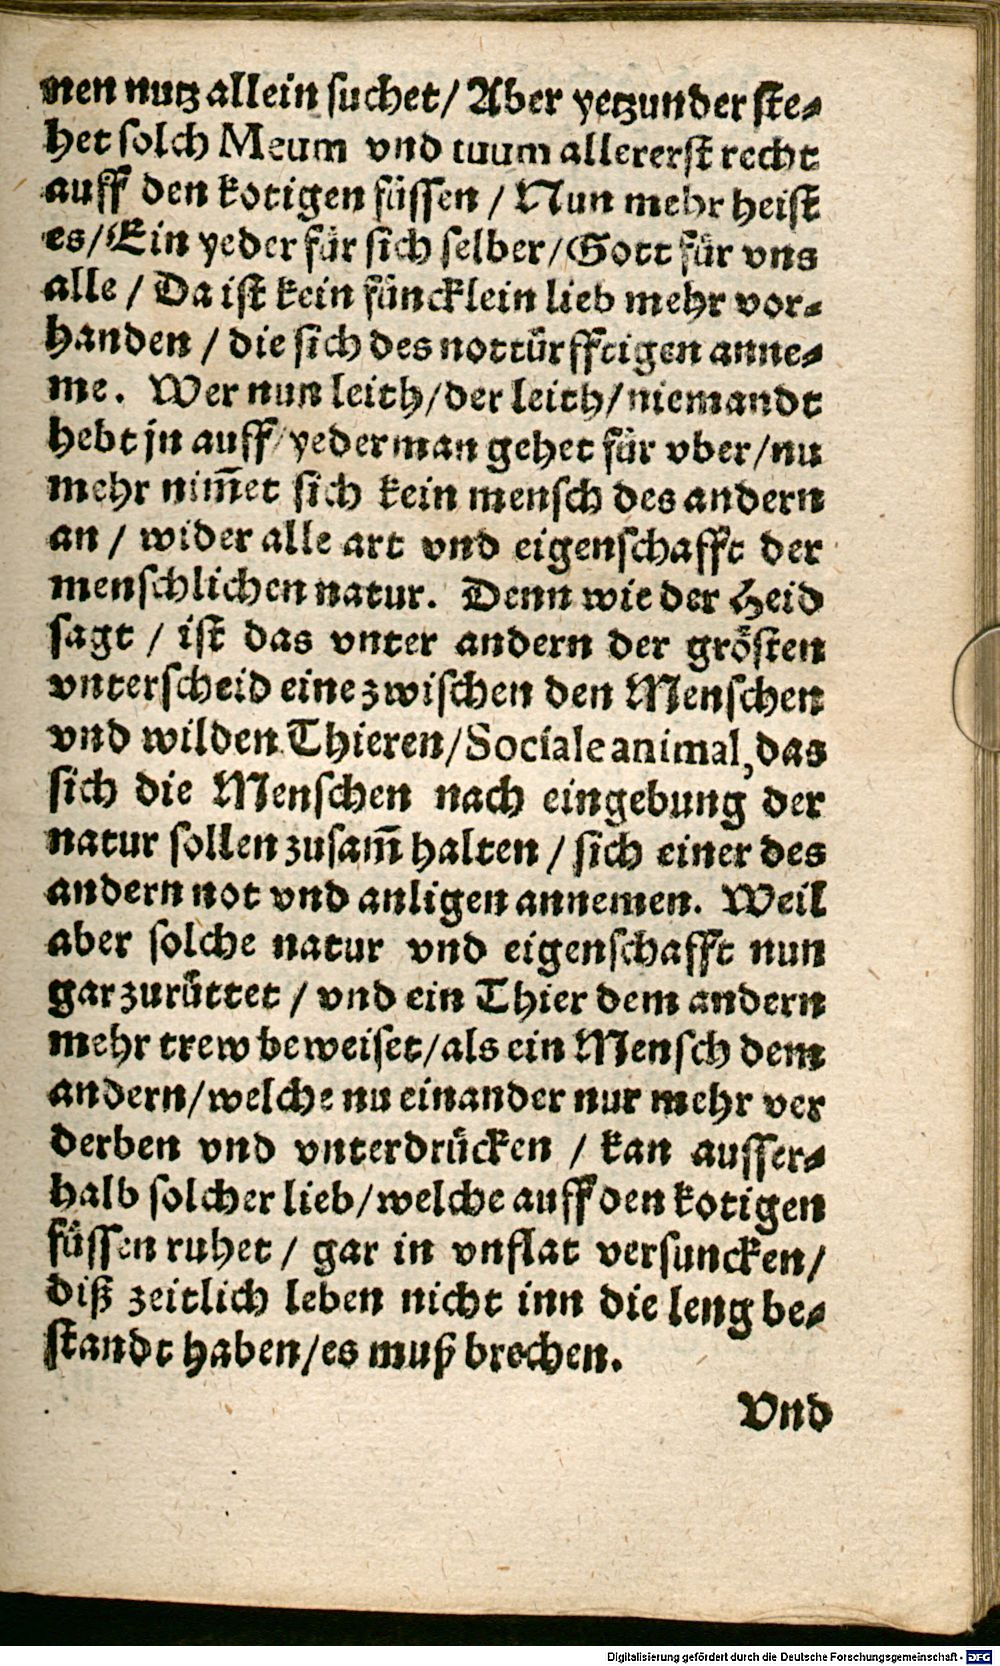 nen nutz allein suchet/ Aber yetzunder ste-
het solch Meum vnd tuum allererst recht
auff den kotigen füssen / Nun mehr heist
es/ Ein yeder für sich selber/ Gott für vns
alle / Da ist kein füncklein lieb mehr vor-
handen / die sich des nottürfftigen anne-
me. Wer nun leith/ der leith/ niemandt
hebt jn auff/ yederman gehet für vber/ nu
mehr nim̄et sich kein mensch des andern
an / wider alle art vnd eigenschafft der
menschlichen natur. Denn wie der Heid
sagt / ist das vnter andern der grösten
vnterscheid eine zwischen den Menschen
vnd wilden Thieren/ Sociale animal, das
sich die Menschen nach eingebung der
natur sollen zusam̄ halten / sich einer des
andern not vnd anligen annemen. Weil
aber solche natur vnd eigenschafft nun
gar zurüttet / vnd ein Thier dem andern
mehr trew beweiset/ als ein Mensch dem
andern/ welche nu einander nur mehr ver
derben vnd vnterdrücken / kan ausser-
halb solcher lieb/ welche auff den kotigen
füssen ruhet / gar in vnflat versuncken/
diß zeitlich leben nicht inn die leng be-
standt haben/ es muß brechen.
Vnd
Digitalisierung gefördert durch die Deutsche Forschungsgemeinschaft - DFG